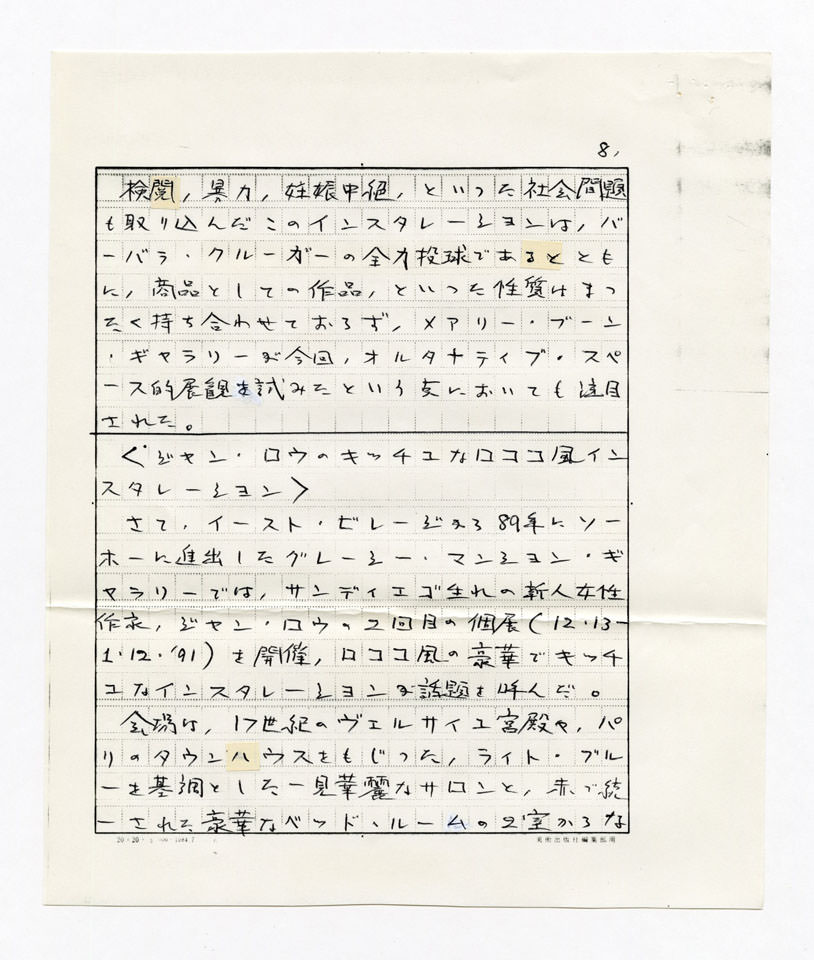 8.
検閲，暴力，妊娠中絶，といった社会問題
も取り込んだこのインスタレーションは，バ
ーバラ・クルーガーの全力投球であるととも
に，商品としての作品，といった性質はまっ
たく持ち合わせておらず，メアリー・ブーン
・ギャラリーが今回，オルタナティブ・スペ
ース的展観を試みたという点においても注目
された。
〈ジャン・ロウのキッチュなロココ風イン
スタレーション〉
さて，イースト・ビレージから89年にソー
ホーに進出したグレーシー・マンション・ギ
ャラリーでは，サンディエゴ生れの新人女性
作家，ジャン・ロウの2回目の個展(12・13-
1・12・'91)を開催，ロココ風の豪華でキッチ
ュなインスタレーションが話題を呼んだ。
会場は，17世紀のヴェルサイユ宮殿や，パ
リのタウンハウスをもじった，ライト・ブル
ーを基調とした一見華麗なサロンと，赤で統
一された豪華なベッド・ルームの2室からな
20×20 1984.7 美術出版社編集部用